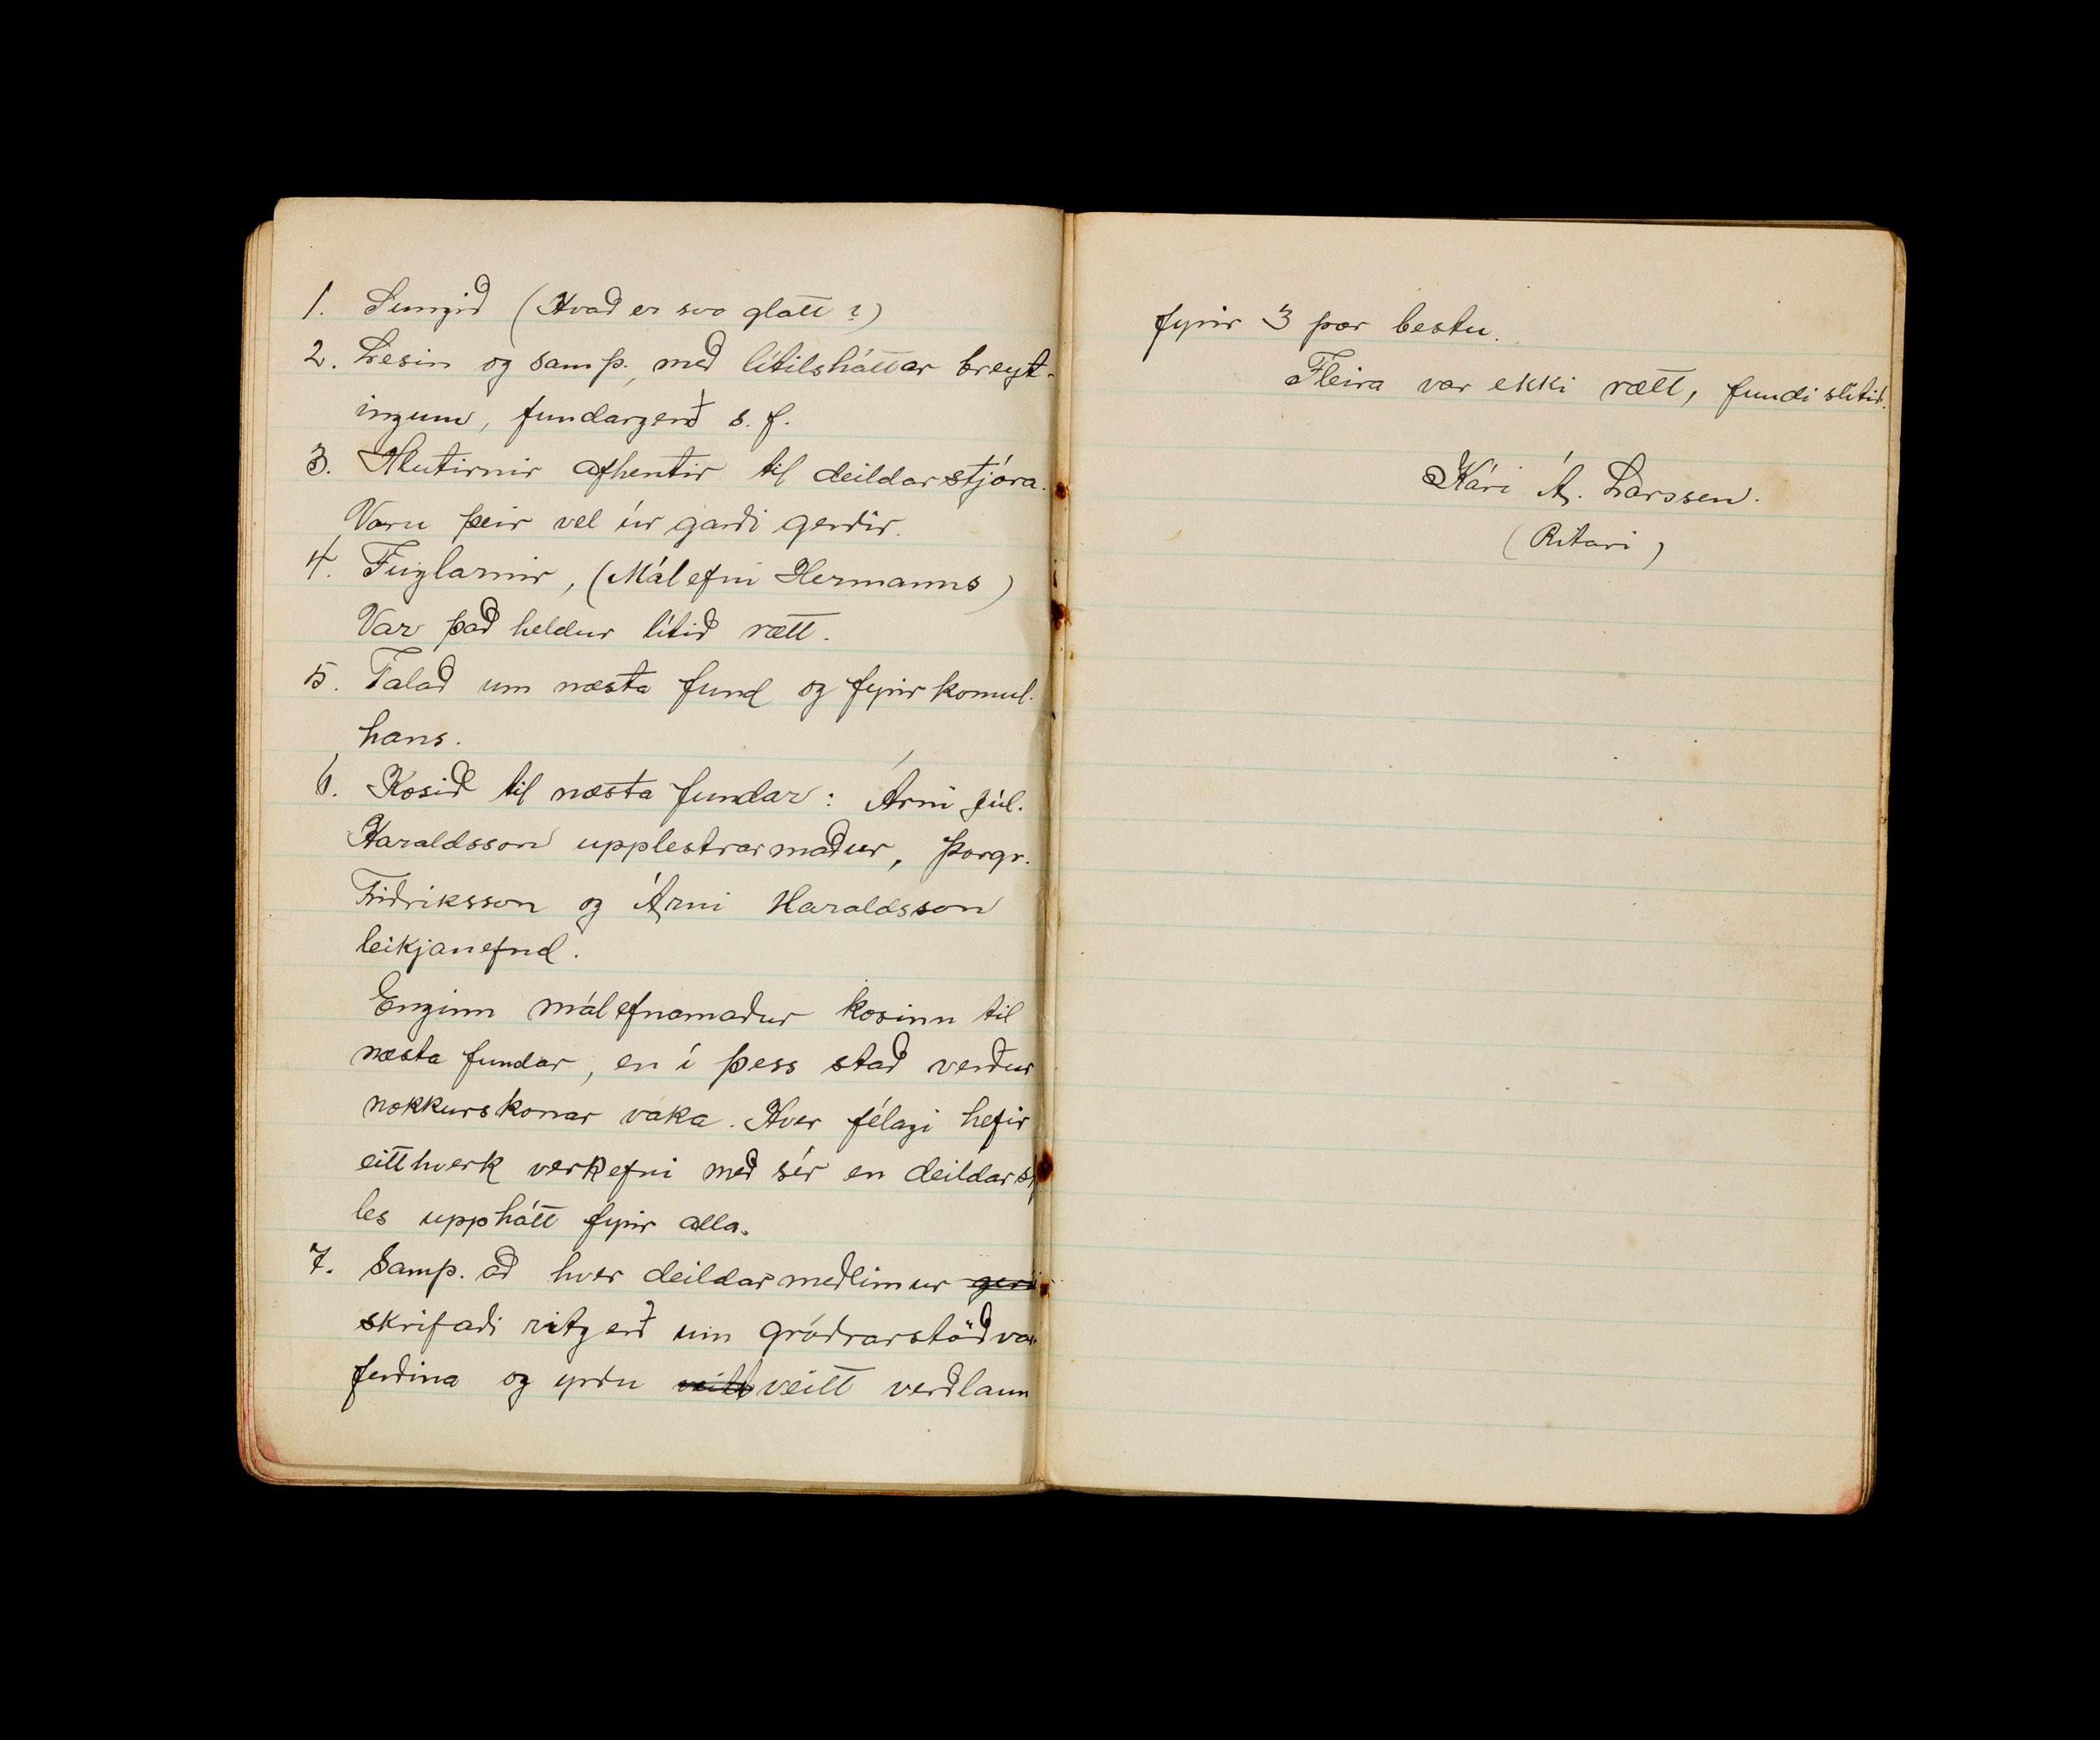 1. Sungið (Hvað er svo glatt?)
2. Lesin og samþ., með lítilsháttar breyt-
ingum, fundargerð s. f.
3. Hlutirnir afhentir til deildarstjóra.
Voru þeir vel úr garði gerðir.
4. Fuglarnir, (Málefni Hermanns)
Var það heldur lítið rætt.
5. Talað um næsta fund og fyrirkomul.
hans.
6. Kosið til næsta fundar: Árni Júl.
Haraldsson upplestrarmaður, Þorgr.
Friðriksson og Árni Haraldsson
leikjanefnd.
Enginn málefnamaður kosinn til
næsta fundar, en í þess stað verður
nokkurskonar vaka. Hver félagi hefir
eitthverk verkefni með sér en deildarstj
les upphátt fyrir alla.
7. Samþ. að hver deildarmeðlimur geri
skrifaði ritgerð um gróðrarstöðvar
ferðina og yrðu veitt veitt verðlaun
fyrir 3 þær bestu.
Fleira var ekki rætt, fundi slitið.
Kári Á. Larssen.
(Ritari)